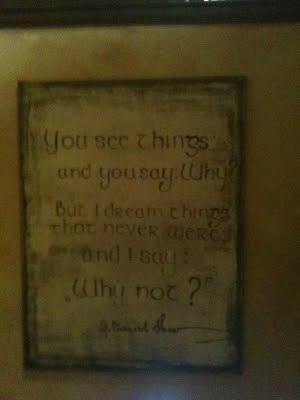 You see things;
and you say: Why?
But I dream things
that never were;
and I say:
„Why not?"
G. Bernard Shaw